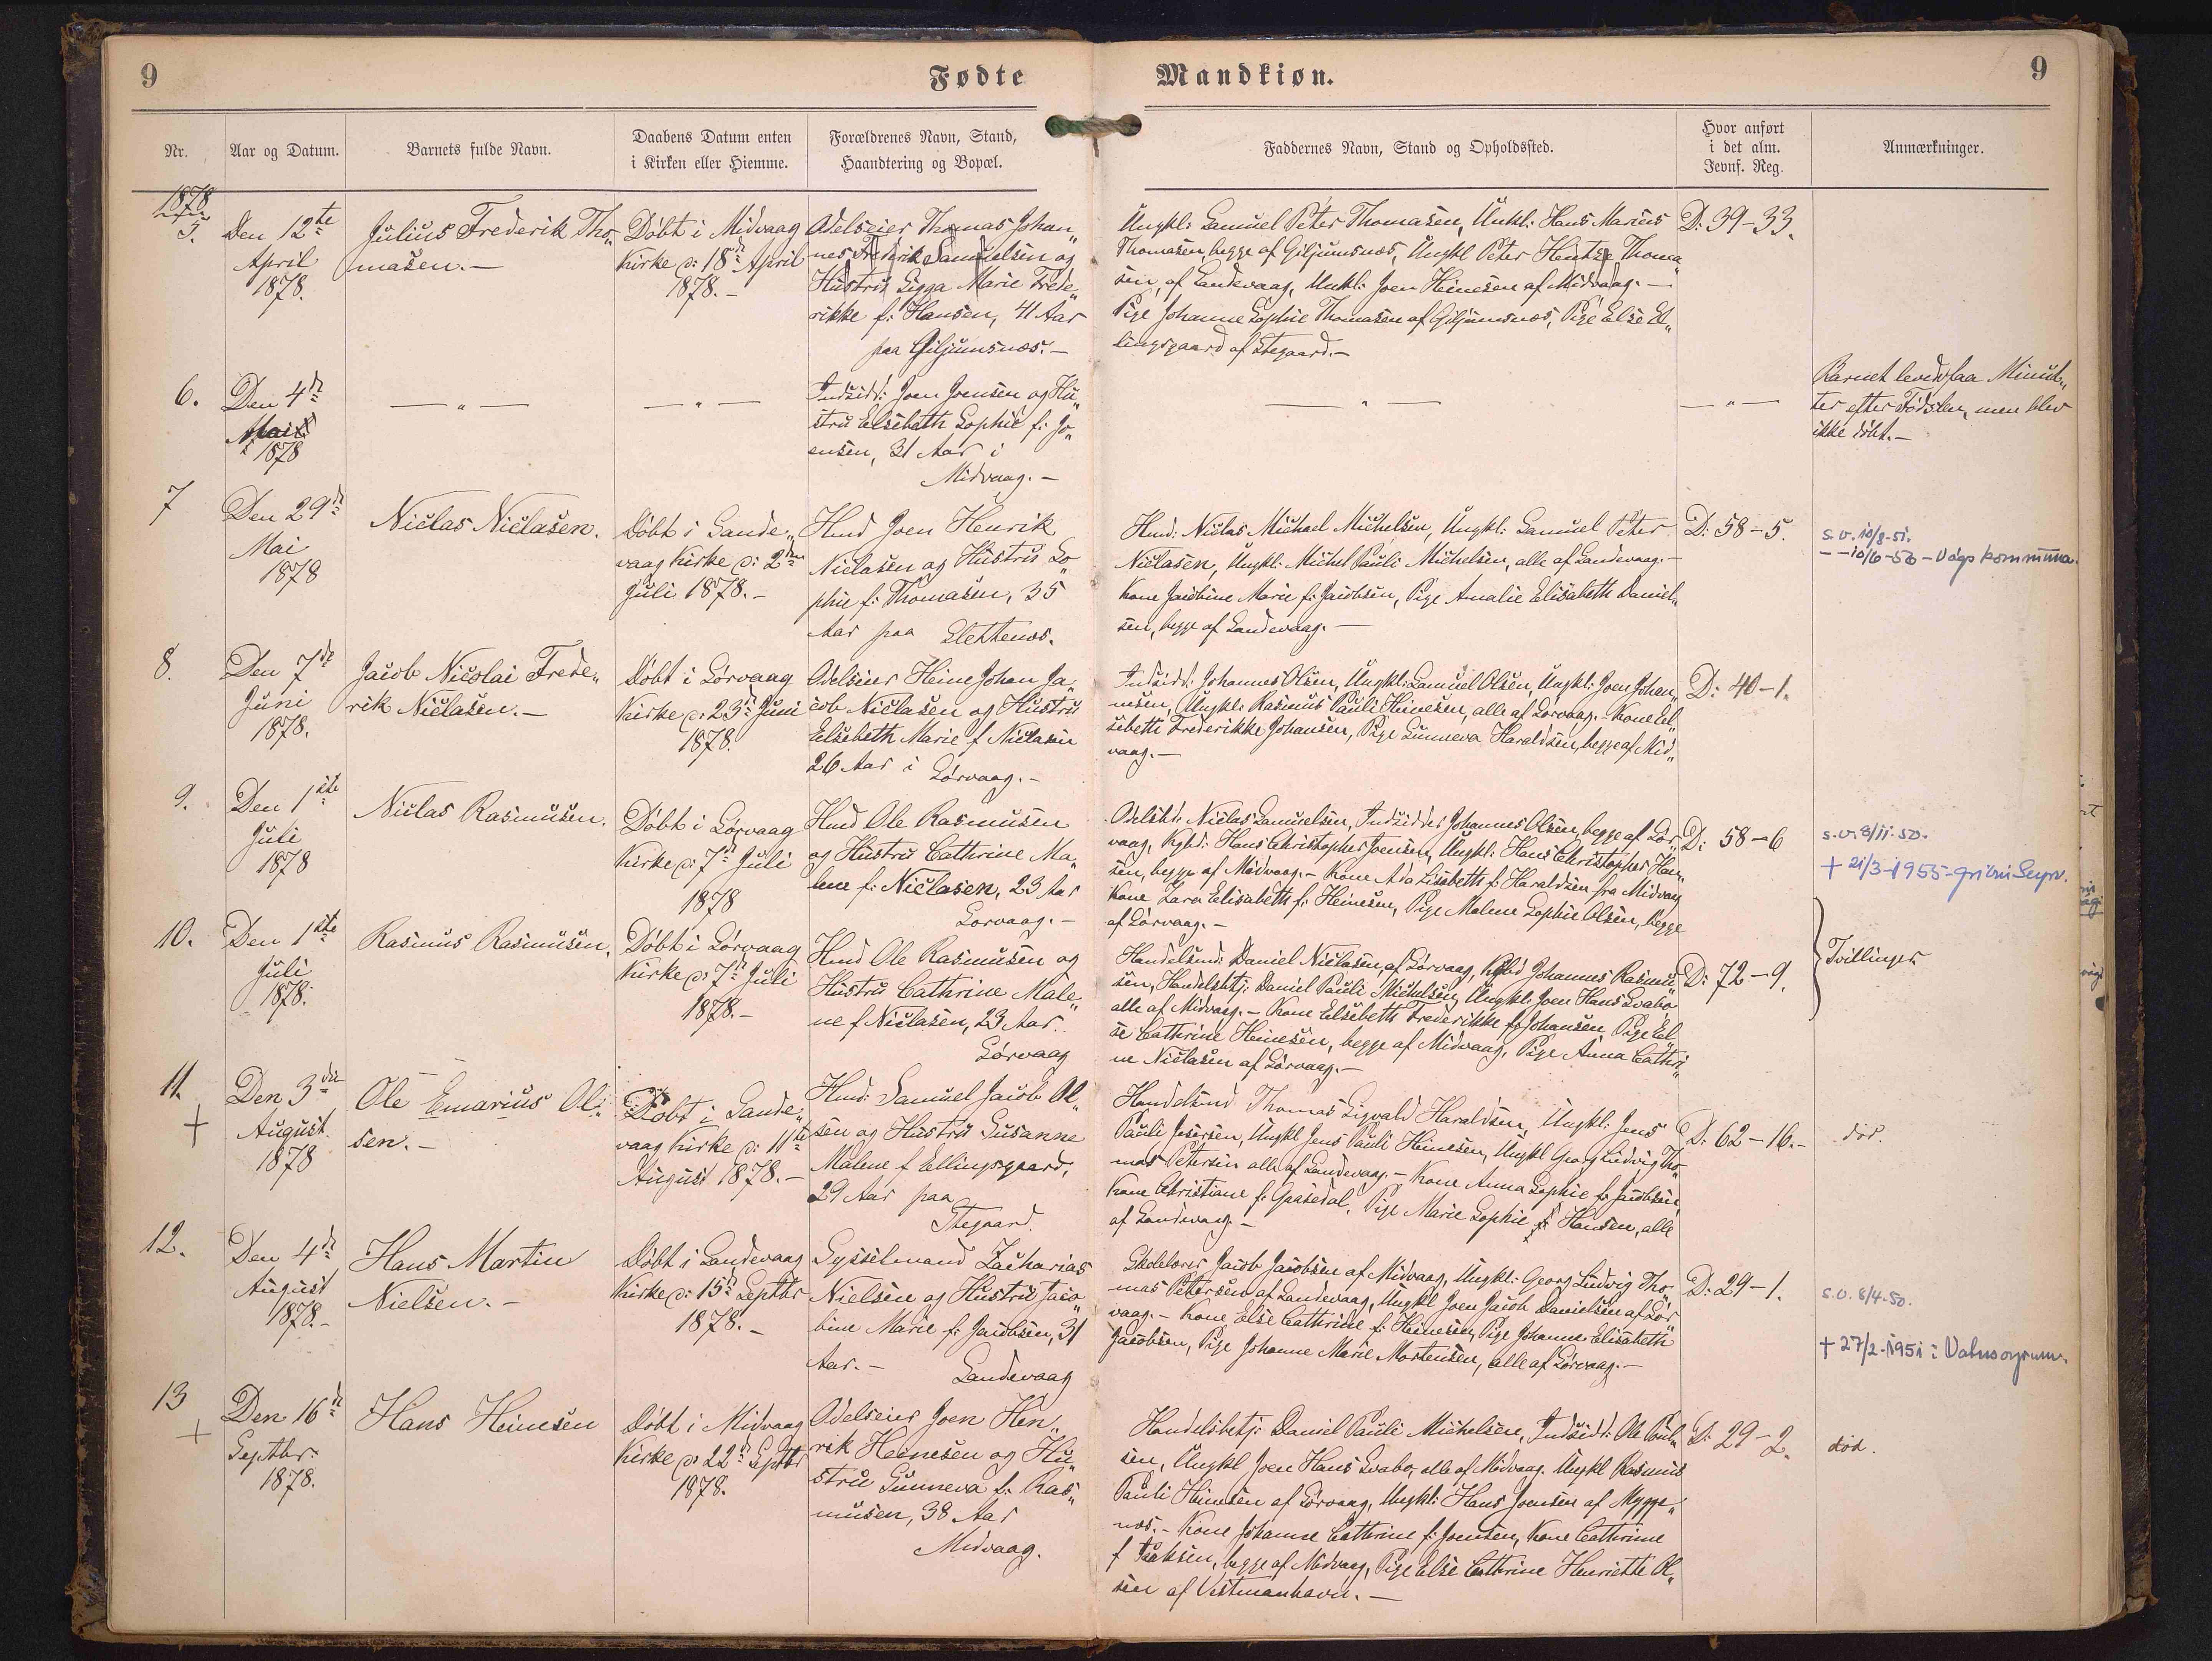 9
Fødte
Mandkiøn.
9
Nr.
Aar og Datum.
Barnets fulde Navn.
Daabens Datum enten
i Kirken eller Hiemme.
Forældrenes Navn, Stand,
Haandtering og Bopæl.
Faddernes Navn, Stand og Opholdssted.
Hvor anført
i det alm.
Jevnf. Reg.
Anmærkninger.
1878
5.
Den 12te
April
1878.
Julius Frederik Tho„
masen.—
Døbt i Midvaag
Kirke d: 18de April
1878.—
Odelseier Thomas Johan„
nes Frederik Samuelsen og
Hustru Sigga Marie Frede„
rikke f: Hansen, 41 Aar
paa Giljumsnæs.—
Ungkl: Samuel Peter Thomasen, Ungkl: Hans Marius
Thomasen, begge af Giljumsnæs, Ungkl Peter Hentze Thoma„
sen, af Sandevaag, Ungkl: Joen Heinesen af Midvaag.—
Pige Johanne Sophie Thomasen af Giljumsnæs, Pige Else El„
lingsgaard af Stegaard.—
D: 39-33.
6.
Den 4de
Mai
1878
— „ —
— „ —
Indsidd: Joen Joensen og Hu„
stru Elsebeth Sophie f: Jo„
ensen, 31 Aar i
Midvaag.—
— „ —
— „ —
Barnet levede faa Minut„
ter efter Fødslen, men blev
ikke døbt.—
7
Den 29de
Mai
1878
Niclas Niclasen.
Døbt i Sande„
vaag Kirke d: 2den
Juli 1878.—
Hmd Joen Henrik
Niclasen og Hustru So„
phie f: Thomasen, 35
Aar paa Slettenæs.
Hmd: Niclas Michael Michelsen, Ungkl: Samuel Peter
Niclasen, Ungkl: Michel Pauli Michelsen, alle af Sandevaag.—
Kone Jacobine Marie f: Jacobsen, Pige Amalie Elisabeth Daniel„
sen, begge af Sandevaag.—
D: 58-5.
s.v. 10/8-51.
— 10/6-50 - Vágs kommuna.
8.
Den 7de
Juni
1878.
Jacob Nicolai Frede„
rik Niclasen.—
Døbt i Sørvaag
Kirke d: 23de Juni
1878.
Odelseier Heine Johan Ja„
cob Niclasen og Hustru
Elsebeth Marie f Niclasen
26 Aar i Sørvaag.—
Indsidd: Johannes Olsen, Ungkl: Samuel Olsen, Ungkl: Joen Johan„
nesen, Ungkl: Rasmus Pauli Heinesen, alle af Sørvaag.- Kone El„
sebeth Frederikke Johansen, Pige Sunneva Haraldsen, begge af Mid„
vaag.—
D: 40-1.
9.
Den 1ste
Juli
1878
Niclas Rasmusen.
Døbt i Sørvaag
Kirke d: 7de Juli
1878
Hmd Ole Rasmusen
og Hustru Cathrine Ma„
lene f: Niclasen, 23 Aar
Sørvaag.—
Odelsbd: Niclas Samuelsen, Indsidder Johannes Olsen, begge af Sør„
vaag, Kgbd: Hans Christopher Joensen, Ungkl: Hans Christopher Han„
sen, begge af Midvaag.- Kone Ada Lisabeth f: Haraldsen fra Midvaag
Kone Zara Elisabeth f: Heinesen, Pige Malene Sophie Olsen, begge
af Sørvaag.—
D: 58-6
s.v. 8/11-50.
+ 21/3-1955-
10.
Den 1ste
Juli
1878.
Rasmus Rasmusen.
Døbt i Sørvaag
Kirke d: 7de Juli
1878.—
Hmd Ole Rasmusen og
Hustru Cathrine Male„
ne f Niclasen, 23 Aar.
Sørvaag
Handelsmd: Daniel Niclasen, af Sørvaag, Kgbd Johannes Rasmu„
sen, Handelsbtj: Daniel Pauli Michelsen, Ungkl: Joen Hans Svabo
alle af Midvaag.- Kone Elsebeth Frederikke f: Johansen, Pige El„
se Cathrine Heinesen, begge af Midvaag, Pige Anna Cathri„
ne Niclasen af Sørvaag.—
D: 72-9.
Tvillinger
11.
+
Den 3die
August
1878
Ole Emarius Ol„
sen.—
Døbt i Sande„
vaag Kirke d: 11te
August 1878.—
Hmd: Samuel Jacob Ol„
sen og Hustru Susanne
Malene f Ellingsgaard,
29 Aar paa
Stegaard.
Handelsmd Thomas Sigvald Haraldsen, Ungkl: Jens
Pauli Jesersen, Ungkl Jens Pauli Heinesen, Ungkl Georg Ludvig Tho„
mas Petersen alle af Sandevaag.- Kone Anna Sophie f: Jacobsen,
Kone Christiane f: Gaasedal, Pige Marie Sophie Hansen, alle
af Sandevaag.—
D: 62-16.-
død.
12.
Den 4de
August
1878.-
Hans Martin
Nielsen.—
Døbt i Sandevaag
Kirke d: 15de Septbr
1878.—
Sysselmand Zacharias
Nielsen og Hustru Jaco„
bine Marie f: Jacobsen, 31
Aar.—
Sandevaag
Skolelærer Jacob Jacobsen af Midvaag, Ungkl: Georg Ludvig Tho„
mas Petersen af Sandevaag, Ungkl Joen Jacob Danielsen af Sør„
vaag.- Kone Else Cathrine f: Heinesen, Pige Johanne Elisabeth
Jacobsen, Pige Johanne Marie Mortensen, alle af Sørvaag.—
D: 29-1.
s.v. 8/4-50.
+ 27/2-1951 :
13
+
Den 16de
Septbr.
1878.
Hans Heinesen
Døbt i Midvaag
Kirke d: 22de Septbr
1878.
Odelseier Joen Hen„
rik Heinesen og Hu„
stru Sunneva f: Ras„
musen, 38 Aar
Midvaag.
Handelsbetj: Daniel Pauli Michelsen, Indsidd: Ole Poul„
sen, Ungkl Joen Hans Svabo, alle af Midvaag. Ungkl Rasmus
Pauli Heinesen af Sørvaag, Ungkl: Hans Joensen af Mygge„
næs.- Kone Johanne Cathrine f: Joensen, Kone Cathrine
f Isaksen, begge af Midvaag, Pige Else Cathrine Henriette Ol„
sen af Vestmanhavn.—
D: 29-2.
død.